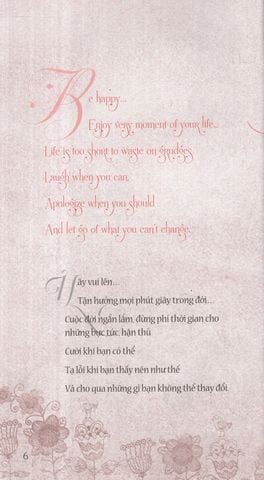 Be happy...
Enjoy very moment of your life...
Life is too short to waste on grudges
Laugh when you can,
Apologize when you should
And let go of what you can't change...
Hãy vui lên...
Tận hưởng mọi phút giây trong đời...
Cuộc đời ngắn lắm, đừng phí thời gian cho
những bực tức, hận thù
Cười khi bạn có thể
Tạ lỗi khi bạn thấy nên như thế
Và cho qua những gì bạn không thể thay đổi.
6